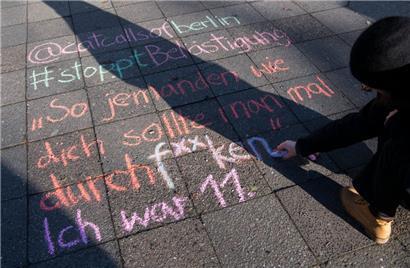 @catcallsofberlin
#stopptBelästigung
"So jemanden wie
dich sollte man mal
durchf××ken"
Ich war 11.